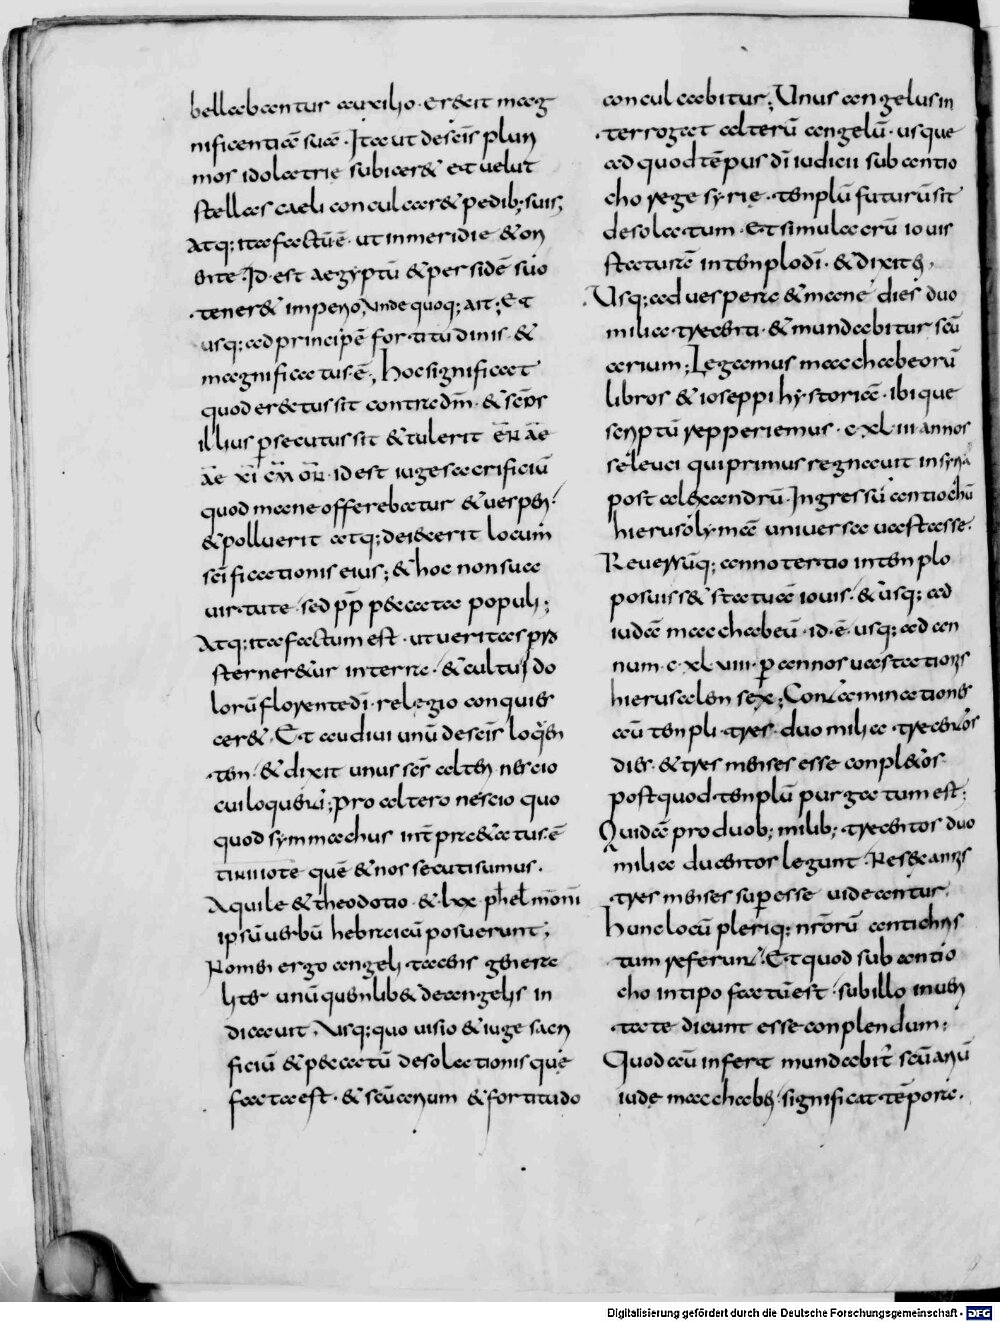 bellabantur auxilio· erat mag
nificentiae suae· Ita ut descis pluri
mos idolatrie subicer& et uelut
stellas caeli conculcar& pedib; suis;
Atq; ita factū ē· ut inmeridie & ori
ente· Id· est aegyptū & persidē suo
tener& imperio, Unde quoq; ait; Et
usq; ad principē fortitudinis· &
magnificatus· ē, Hoc significat
quod erectus sit contra dm̄· & scōs
illius persecutus sit & tulerit
id est iuge sacrificiū
quod mane offerebatur & uesperi·
& polluerit atq; deiecerit locum
scīficationis eius; & hoc non sua
uirtute· sed pp̄ peccata populi;
Atq; ita factum est· ut ueritas pro
sterner&ur interra· & cultu do
lorū florente dī· relegio conquies
cer&· Et audiui unū descis loquen
tem· & dixit unus scs̄ alteri nescio
cui loquenti; pro altero nescio quo
quod symmachus intpra&atus· ē
quē & nos secuti sumus·
Aquile & theodotio· & lxx· phel moni
ipsū uerbū hebraicū posuerunt;
Nomen ergo angeli tacens genera
liter unū quemlib& de angelis in
dicauit, Usq; quo uisio & iuge sacri
ficiū & peccatū desolationis que
facta est· & scūarium & fortitudo
conculcabitur; Unus angelus in
terrogat alterū angelū· usque
ad quod tēpus dī iudicii sub antio
cho rege syrie· templū futurū sit
desolatum· Et simulacrū iouis
staturū in templo dī· & dixit ei·
Usq; ad uespera & mane dies duo
milia trecenti· & mundabitur scū
arium; Legamus machabeorū
libros & ioseppi hystoriae· ibique
scriptū repperiemus· c·xl·iii annos
seleuci qui primus regnauit in syria
post alexandrū· Ingressū antiochū
hierusolymae uniuersa uastasse·
Reuersūq; anno tertio in templo
posuiss& statuae iouis· & usq; ad
iudae machabeū· id·ē· usq; ad an
num· c·xl·viii· per annos uastationis
hierusalem sex; Contaminationis
aū templi tres· duo milia trecentos
dies· & tres menses esse conpl&os
postquod templū purgatum est;
Quidā pro duob; milib; trecentos duo
milia ducentos legunt· Ne sex annis
tres menses superesse uideantur·
Hunc locū pleriq; nrōrū antichris
tum referunt· Et quod sub antio
cho in tipo factū est· sub illo in ueri
tate dicunt esse conplendum;
Quod aū infert mundabit scūariū
iude machabei significat tēpora·